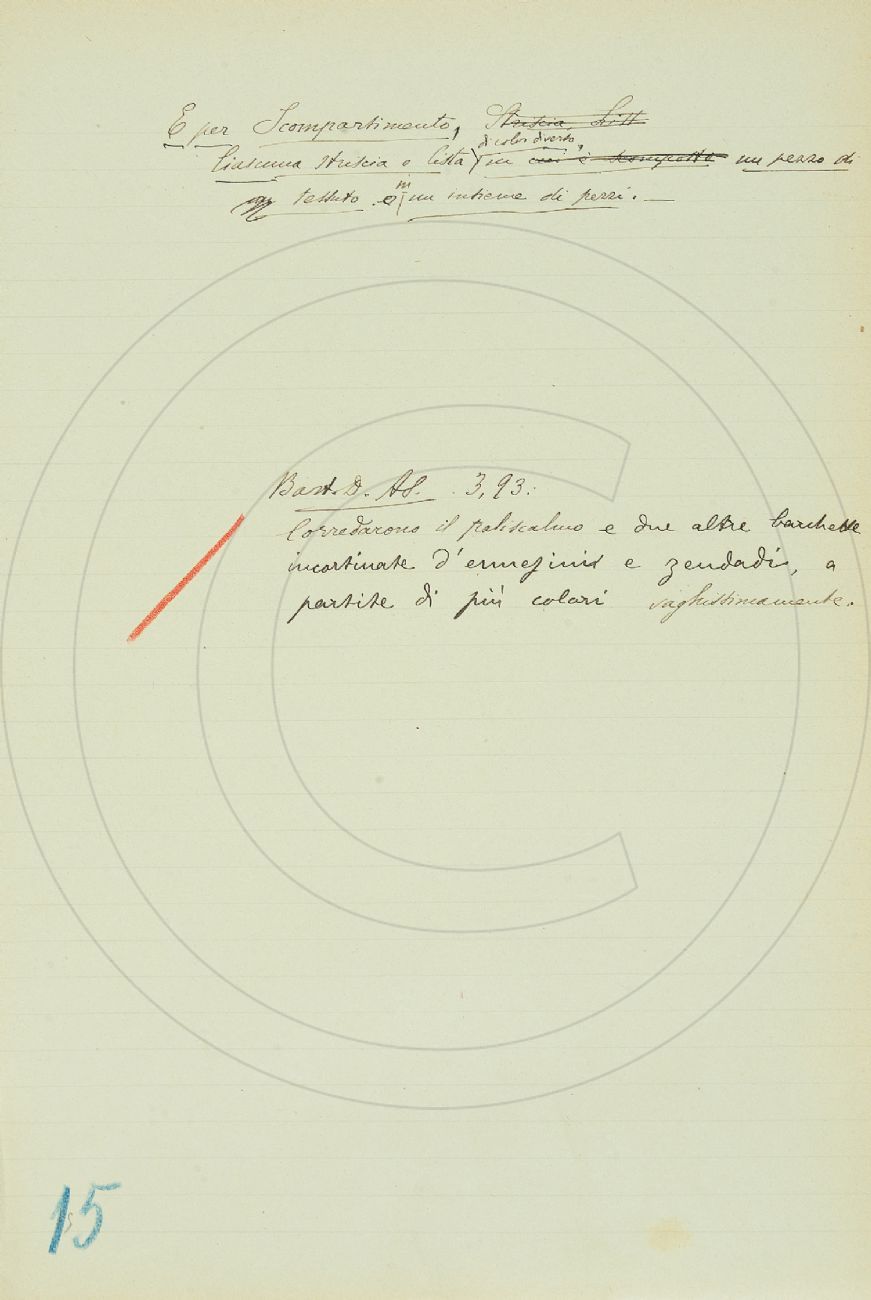 E per Scompartimento, Striscia, List
di color diverso,
Ciascuna striscia o lista in cui è scomposto un pezzo di
in
tessuto o un insieme di pezzi. —
Bart. D. As. 3, 93:
Corredarono il paliscalmo e due altre barchette
incortinate d'ermesini e zendadi, a
partite di più colori vaghissimamente.
15